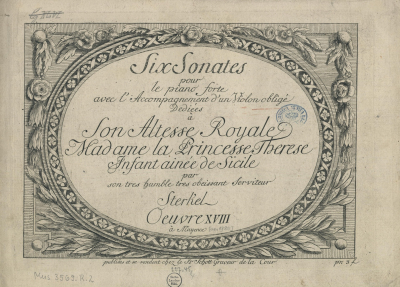 Six Sonates
pour
le piano forte
avec l'Accompagnement d'un Violon obligé
Dediées
à
Son Altesse Royale
Madame la Princesse Therese
Infant ainée de Sicile
par
son tres humble tres obeissant Serviteur
Sterkel
Oeuvre XVIII
à Mayence
publiés et se vendent chez le Sr Schott Graveur de la Cour
Mus 3969.R.2